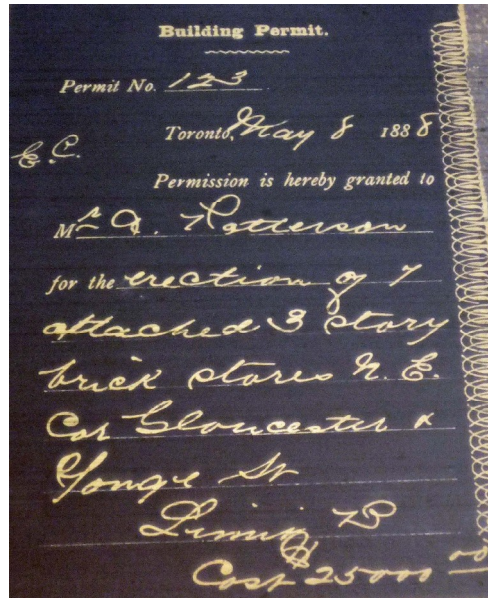 Building Permit.
Permit No. 123
Toronto, May 8 1888
E. C.
Permission is hereby granted to
Mr A. Patterson
for the erection of 7
attached 3 story
brick stores N. E.
Cor Gloucester &
Yonge St
Limit B
Cost 25000 00